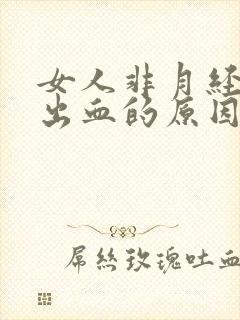 女人非月经
出血的原因
屌丝玫瑰吐血